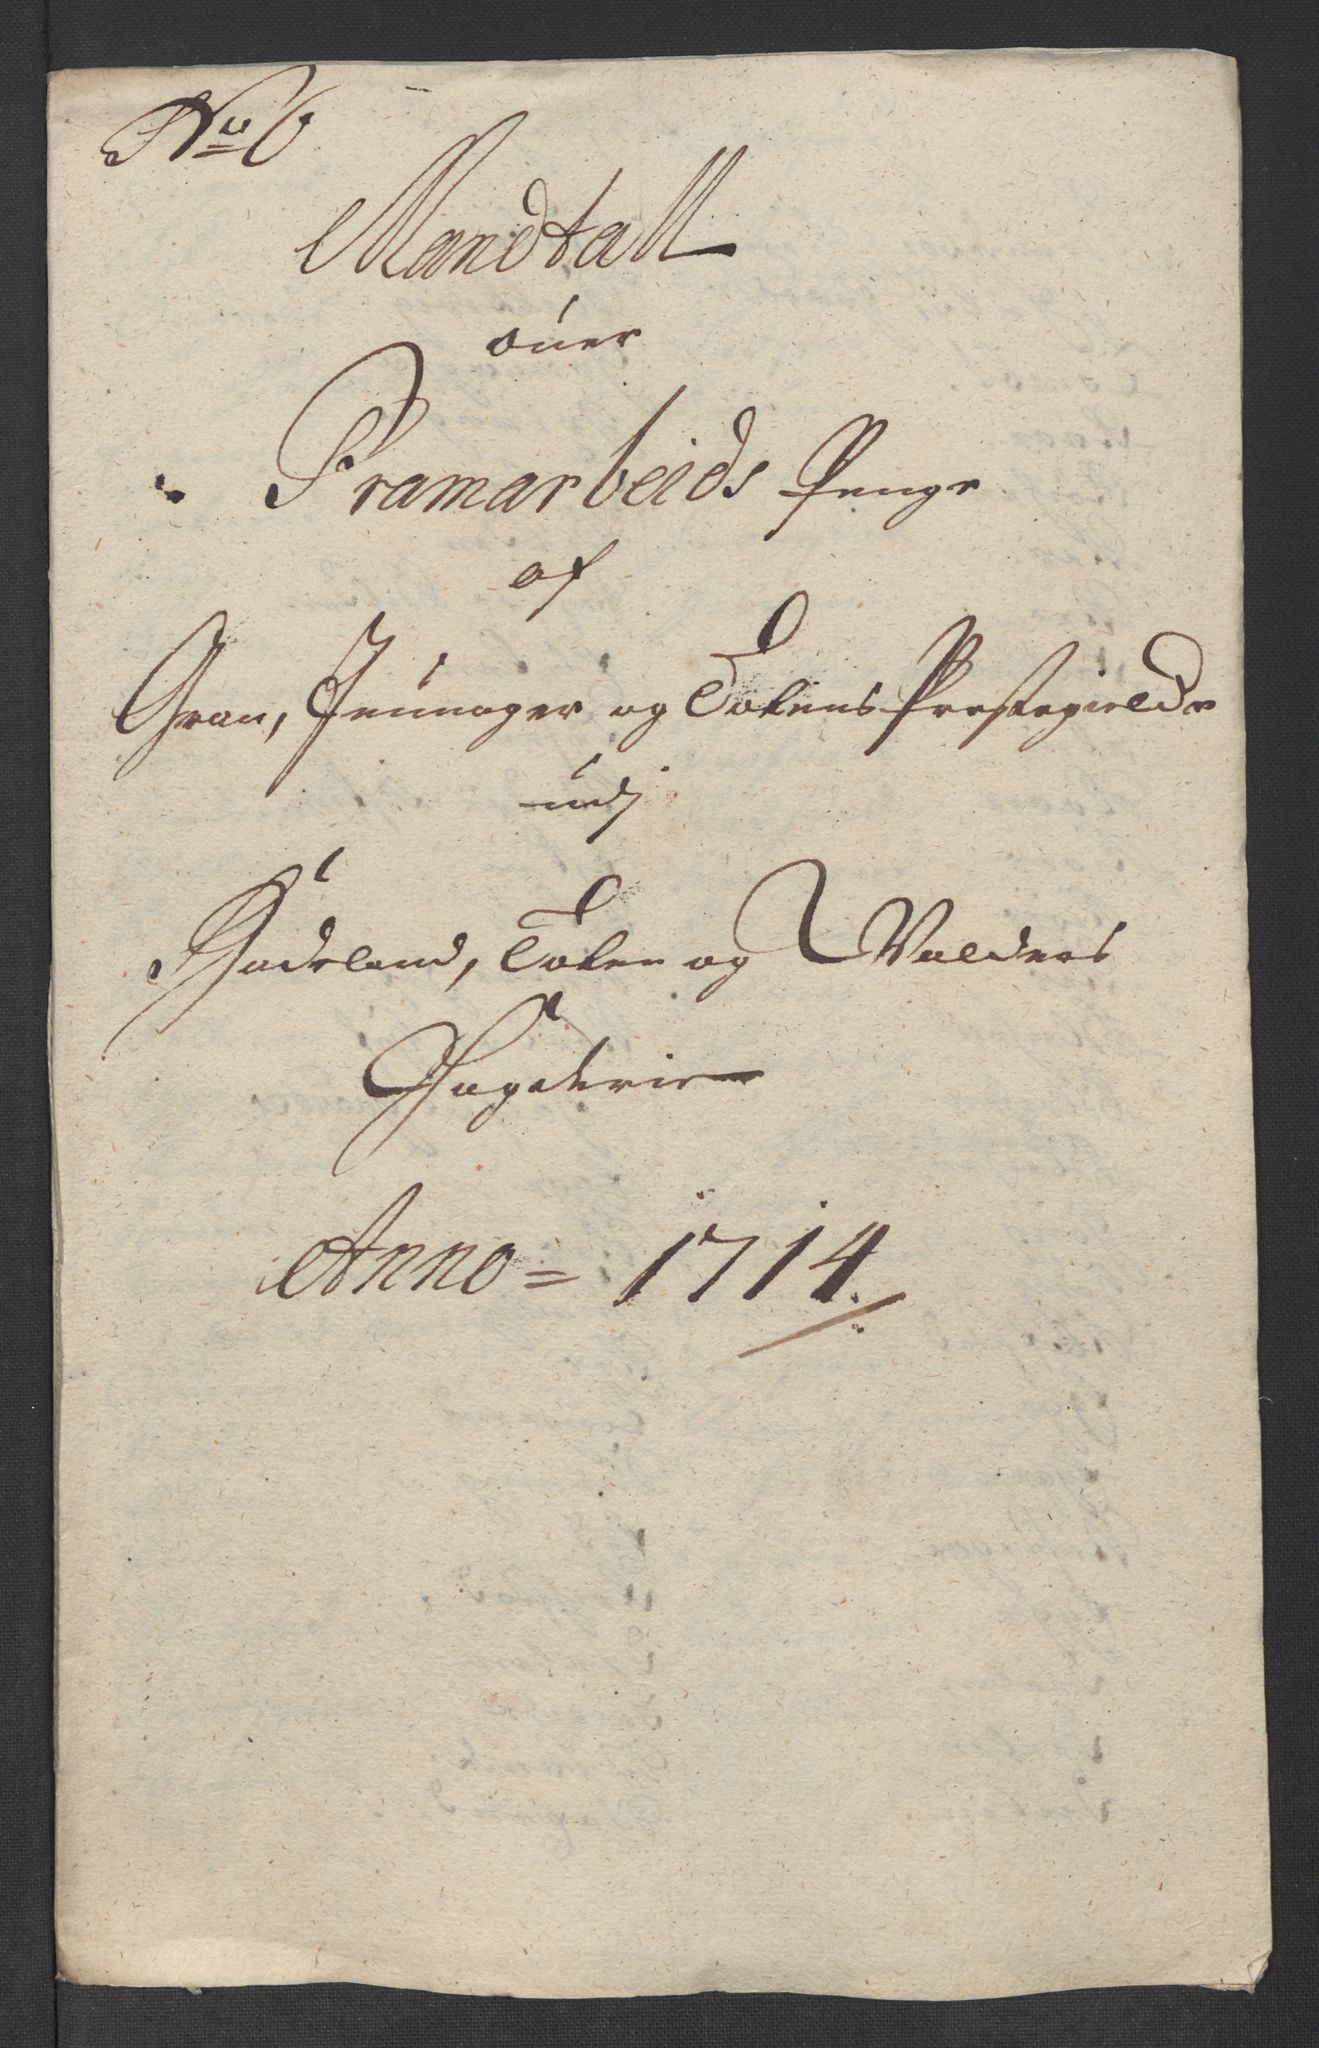 No 6
Mandtall
ofuer
Pramarbeids Penge
af
Gran, Jeunager og Totens Prestegielde
udj
Hadeland, Toten og Walders
Fogderie
Anno = 1714.